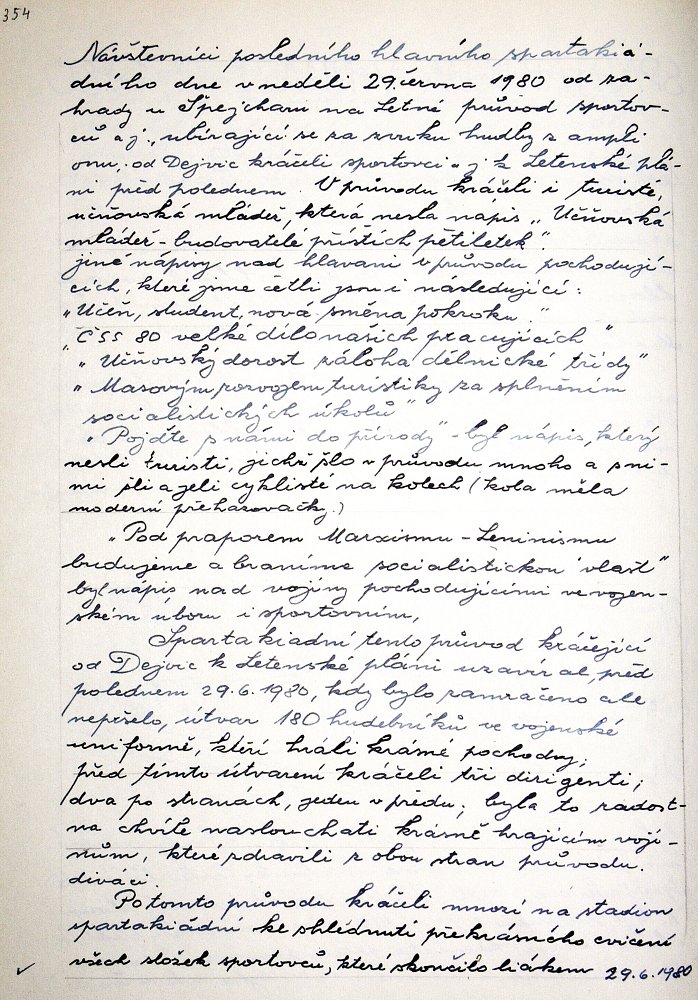 354
Návštevníci posledního hlavního spartakiá-
dního dne v neděli 29. června 1980 od za-
hrady u Špejcharu na Letné průvod sportov-
ců a j. „ubírající se za zvuku hudby z ampli
onu, od Dejvic kráčeli sportovci a j. k Letenské plá-
ni před polednem. V průvodu kráčeli i turisté,
učňovská mládež, která nesla nápis „Učňovská
mládež - budovatelé příštích pětiletek".
jiné nápisy nad hlavami v průvodu pochodují-
cích, které jsme četli jsou i následující:
„Učeň, student, nová směna pokroku."
„ČSS 80 velké dílo našich pracujících"
„Učňovský dorost záloha dělnické třídy"
„Masovým rozvojem turistiky za splněním
socialistických úkolů"
„Pojďte s námi do přírody" - byl nápis, který
nesli turisti, jichž šlo v průvodu mnoho a s ni-
mi šli a jeli cyklisté na kolech (kola měla
moderní přehazovačky.)
„Pod praporem Marxismu - Leninismu
budujeme a bráníme socialistickou vlast"
byl nápis nad vojíny pochodujícími ve vojen-
ském úboru i sportovním,
Spartakiadní tento průvod kráčející
od Dejvic k Letenské pláni uzavíral, před
polednem 29.6.1980, kdy bylo zamračeno ale
nepršelo, útvar 180 hudebníků ve vojenské
uniformě, kteří hráli krásné pochody,
před tímto útvarem kráčeli tři dirigenti;
dva po stranách, jeden v předu; byla to radost-
na chvíle naslouchati krásně hrajícím vojí-
nům, které zdravili z obou stran průvodu.
diváci.
Po tomto průvodu kráčeli mnozí na stadion
spartakiádní ke shlédnutí překrásného cvičení
všech složek sportovců, které skončilo 29.6.1980